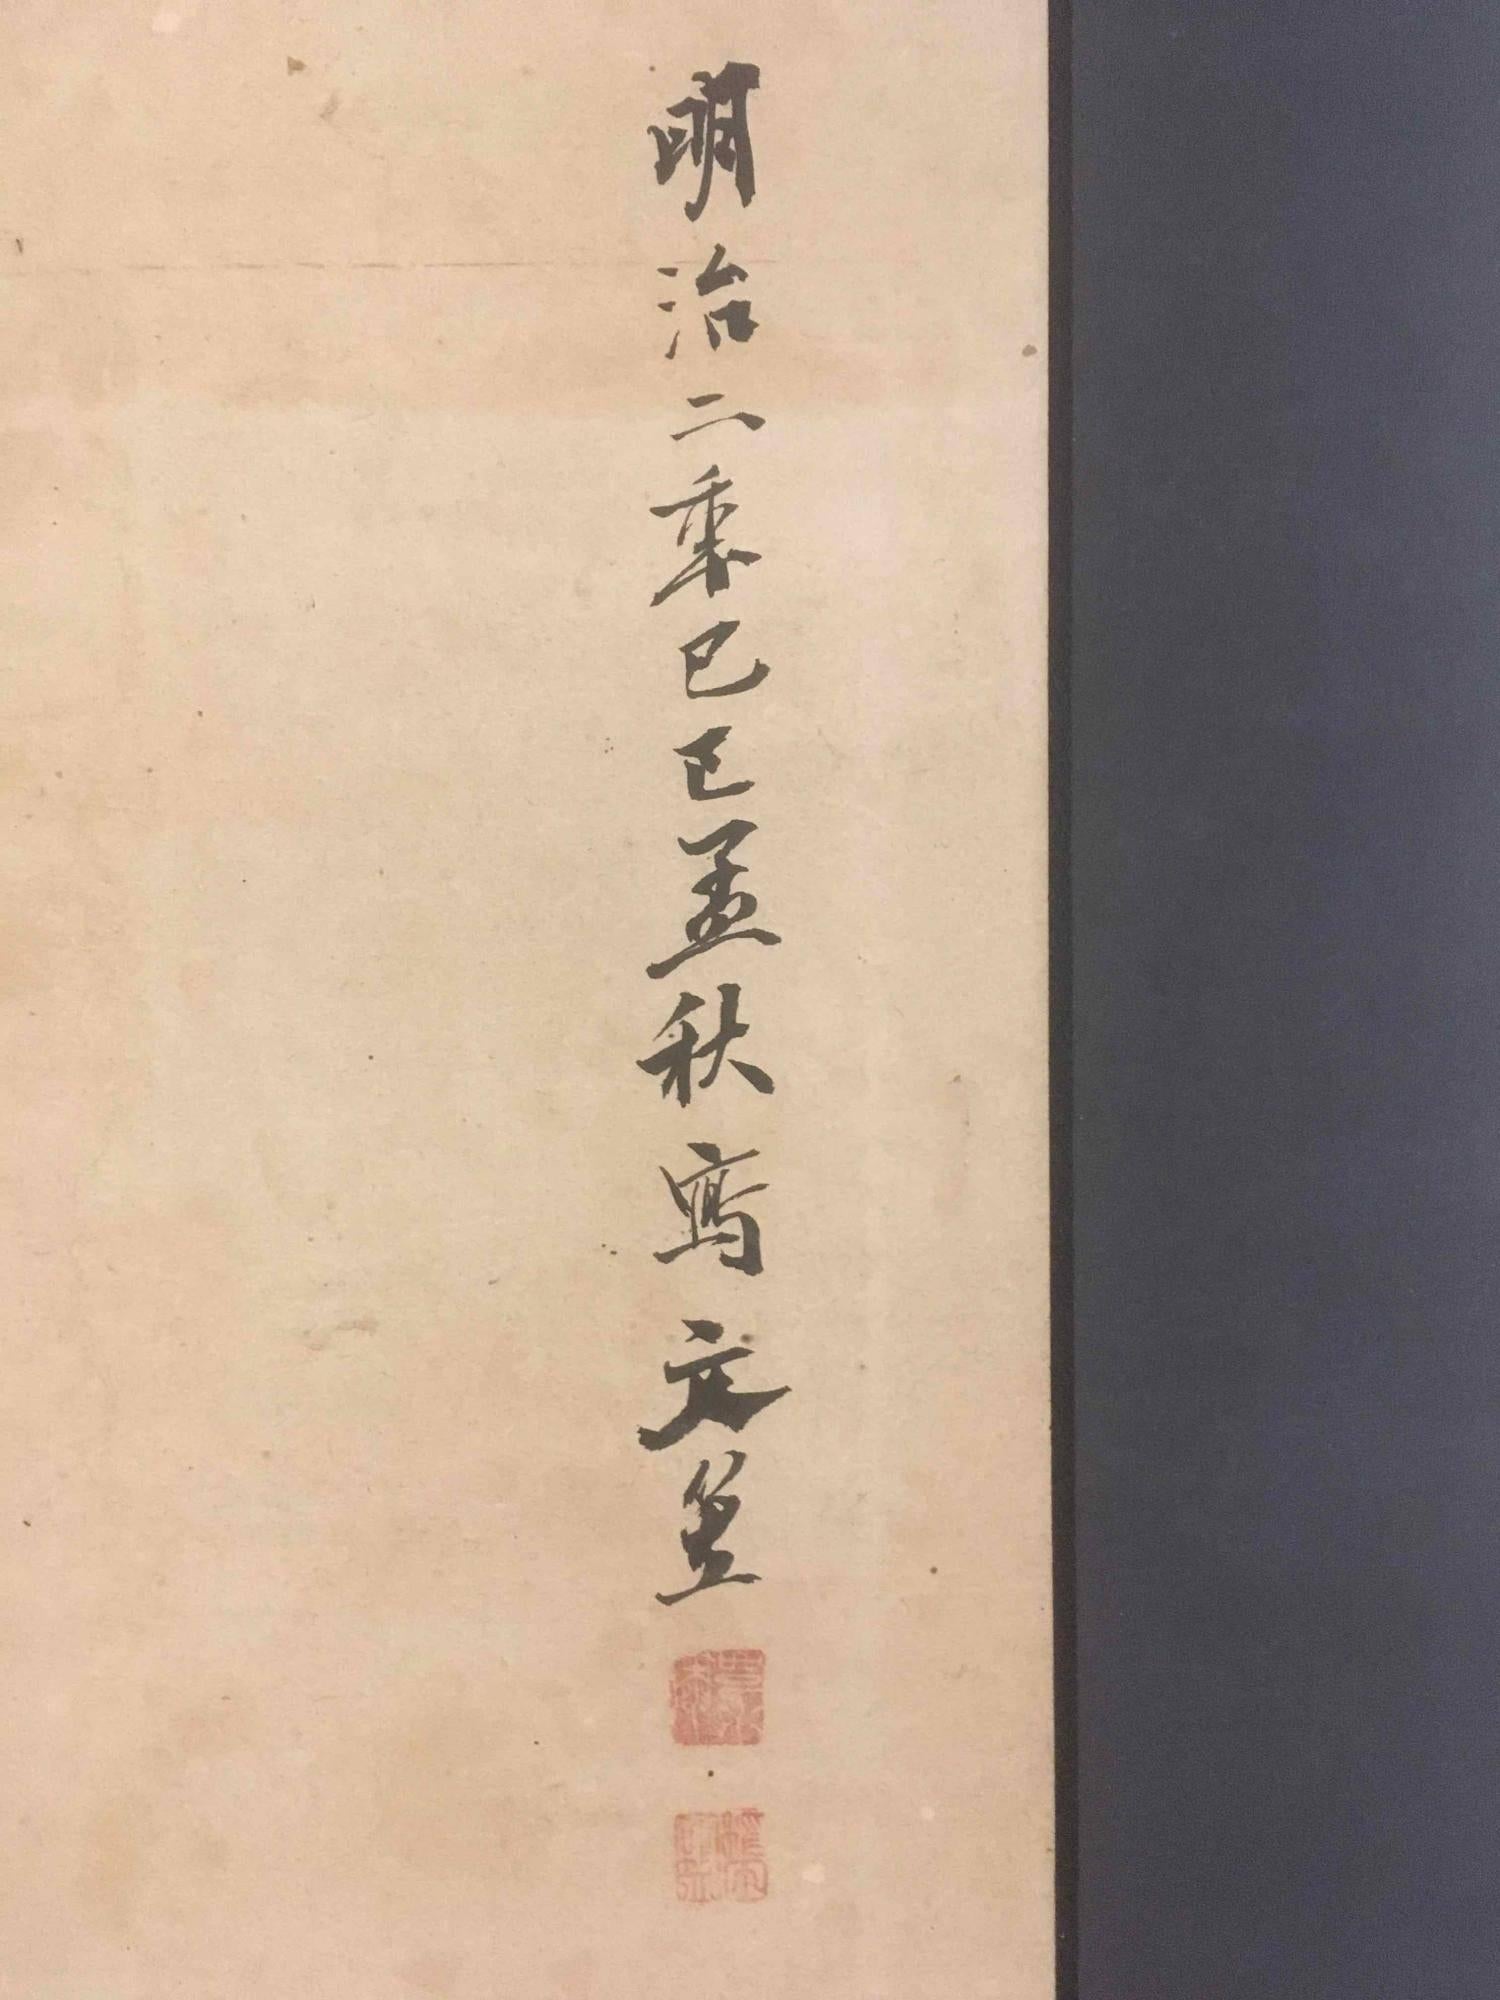 明治二秊己巳孟秋寫文笠